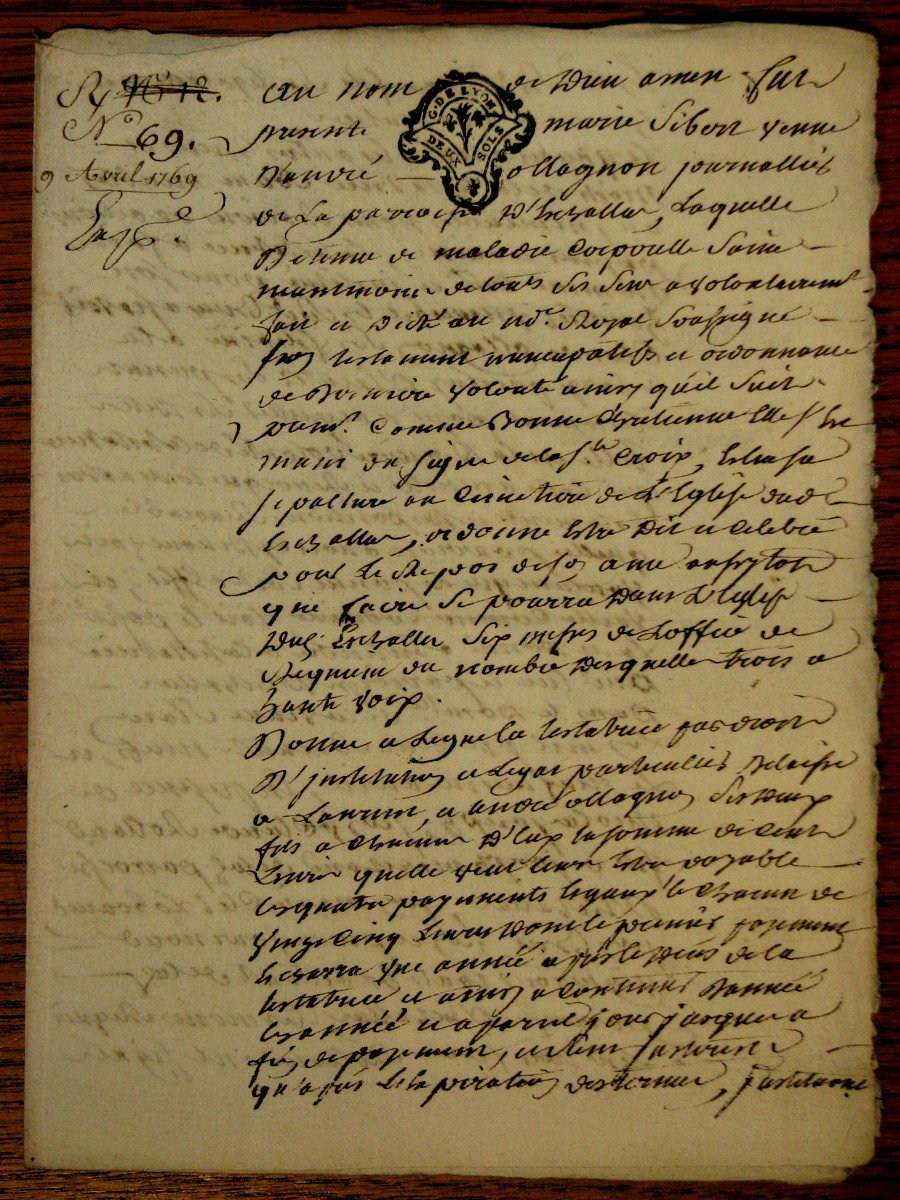 N° 12.
N° 69.
9 Avril 1769
G. DE LYON
DEUX SOLS
au nom de Dieu amen. fut
presente marie Sibert veuve
D'andré ollagnon journallier
de la paroisse D'Echallas, Laquelle
Detenue de maladie Corporelle Saine
neantmoins de tous ses sens a volontairemt
fait et Dicté au nre Royal Soussigné
son testament nuncupatif et ordonnance
de Derniere volonté ainsy qu'il suit.
premt Comme Bonne Chretienne Elle s'est
munie du signe de la ste Croix, Eslu sa
sepulture au Cimetiere de L'Eglise dud
Echallas, ordonne Estre Dit et Celebré
pour Le Repos de son ame aussytot
que faire se pourra Dans L'Eglise
Dud Echallas six messes de L'office de
Requiem du nombre Desquelles trois a
haute voix.
Donne et Legue la testatrice par droit
D'institution et Legat particulier Delaissé
a Laurent, et andré ollagnon ses Deux
fils a Chacun D'eux la somme de Cent
Livres quelle veut leur Estre payable
En quatre payements Egaux de Chacun de
vingt Cinq Livres Dont le premier payement
Echerra une année apres le Deces de la
testatrice et ainsy a Continuer D'année
En année et a pareil jour jusques a
fin de payement,
qu'apres L'expiration des termes, instituant